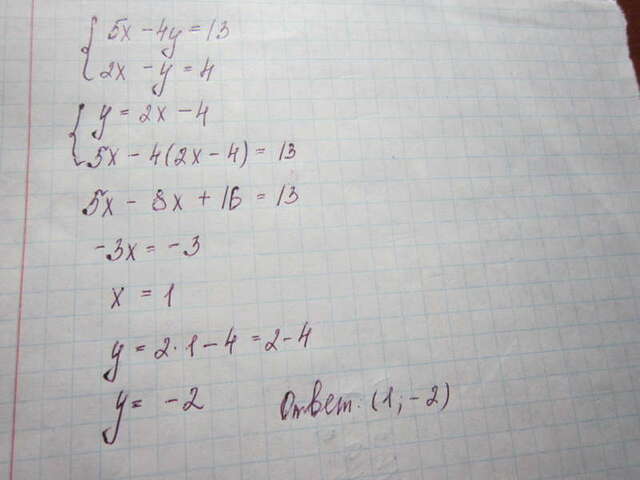 5x - 4y = 13
2x - y = 4
y = 2x - 4
5x - 4(2x - 4) = 13
5x - 8x + 16 = 13
-3x = -3
x = 1
y = 2·1 - 4 = 2 - 4
y = -2 Ответ. (1; -2)